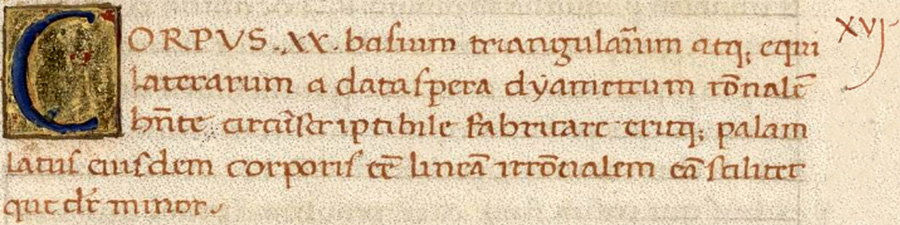 CORPVS .XX. basium triangulariũm atq; equi xvj
laterarum a data spera dyametrum rõnalẽ
hñte. circũscriptibile fabricare eritq; palam
latus eiusdem corporis eẽ lineã irrõnalem eã scilicet
que dr̃ minor.